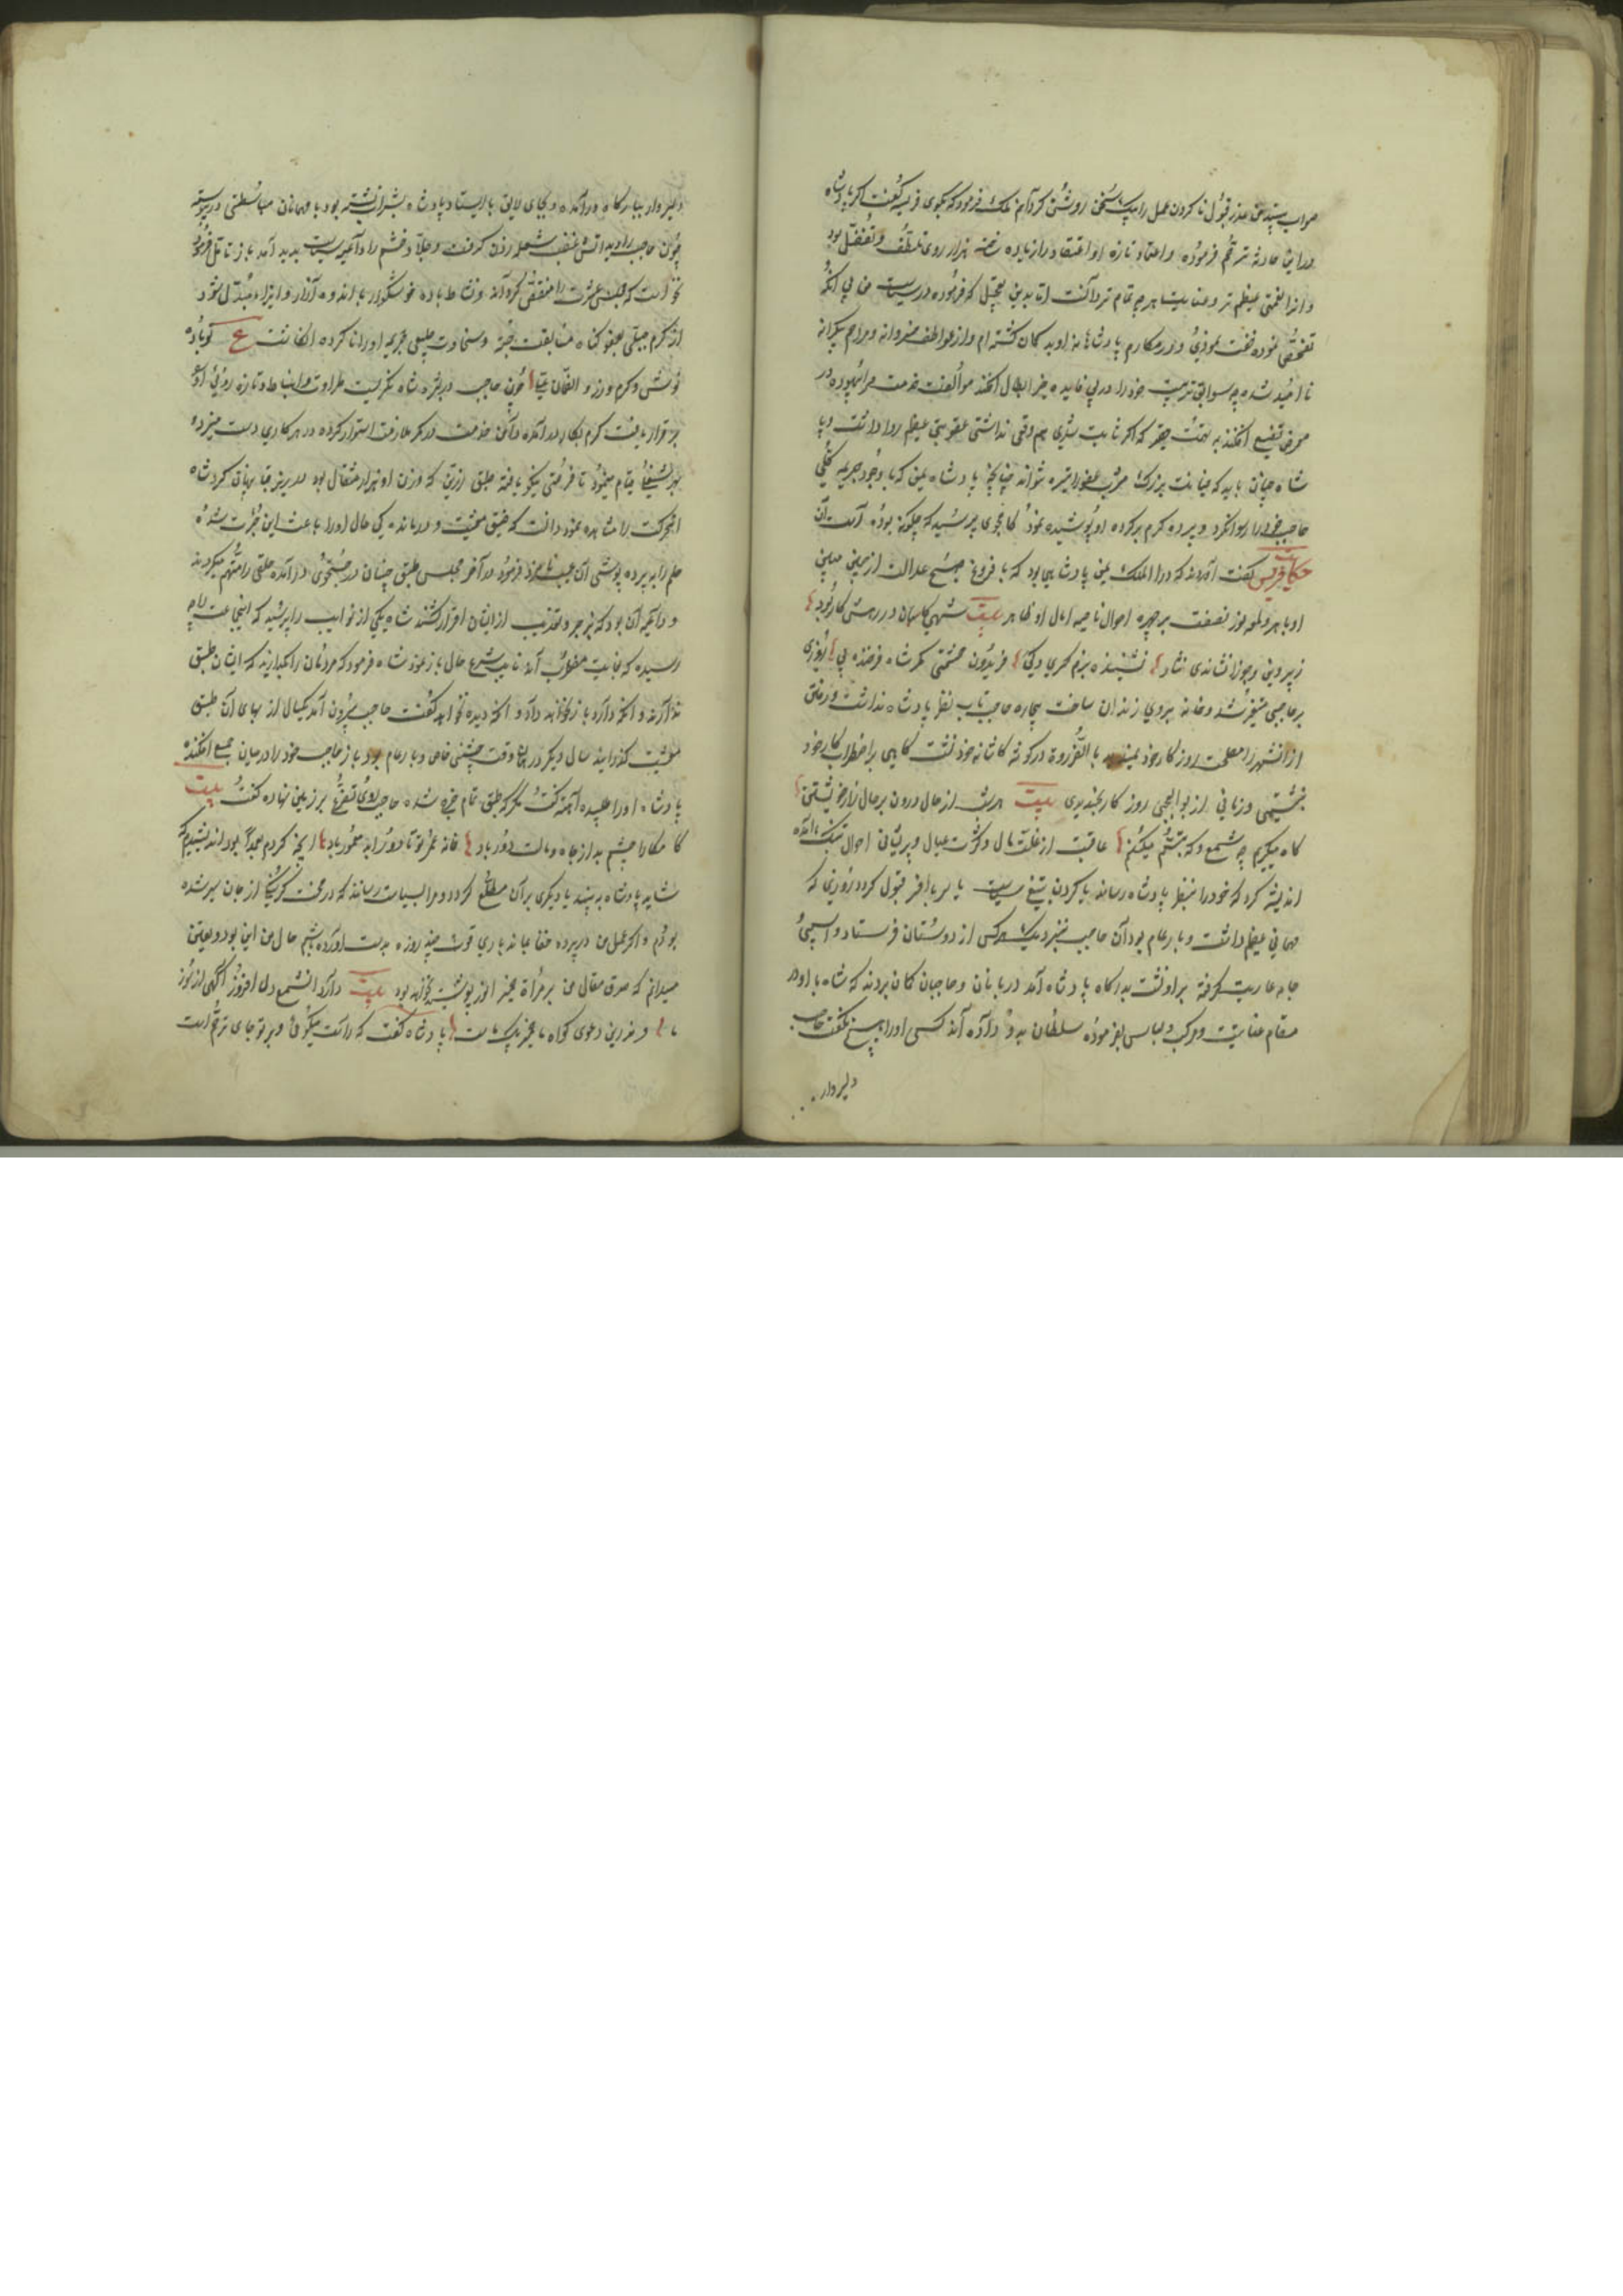 صواب بیند من عذر قبول ناکردن عمل را بیک سخن روشن کردانم ملک فرمود که بکوی فریسه کفت اکر پادشاه
درین حادثه ترحم فرموده و اعتماد تازه او اعتقاد را زیاده هزار روی تلطف و تفضل بود
و انرا نعمتی عظیم تر و عنایت هرچه تمام تر دانست اما بدین تعجیل که فرموده در سیاست من بی آنکه
تفحصی نموده سخت نمودی و از مکارم پادشاهانه نا امید کمان کشته ام و از عواطف خسروانه و مراحم بیکرانه
نا امید شده چه سوابق تربیت خود را در بی فایده حیز ابطال افکند سوالفت خدمت مرا بیهوده در
معرض تضییع افکند به تهمت حقیر که اکر ثابت شدی هم وقعی نداشتی عقوبتی عظیم روا داشت و با
شاه چنان باید که خیانت بزرک مشرب عفو او تیره نتواند چنانچه پادشاه یمن که با وجود جریمه کلی
حاجب خود را رسوا نکرد و پرده کرم بر کرده او پوشیده نمود کامجوی پرسید که چکونه بوده است آن
حکایت فریسه کفت آورده اند که در دار الملک یمن پادشاهی بود که با فروغ صبح عدالت از جبین مبین
او باهر و لمعه نور نصفت بر چهره احوال ناصیه آمال او ظاهر بیت شهی کاسمان در رهش کار بود
زبیر دینی و جوزا نشاندی نثار نشیننده بزم کسری و کی فریدون حشمتی کر شاه فرخنده پی روزی
بر حاجبی متغیر شد و خانه بر وی زندان ساخت بیچاره حاجب تاب نظر پادشاه نداشت و رفتن
از انشهر را مصلحت روز کار خود نمیدید بالضروره در کوشه کاشانه خود نشست کاهی بر اضطراب کار خود
خشتیمی و زمانی از بو العجبی روز کار بخندیدی بیت هر شب از حال درون بر حال زار خویشتن
کاه میکریم چو شمع و که تبسم میکنم عاقبت از غلت مال و کثرت عیال و پریشانی احوال بتنک آمده
اندیشه کرد که خود را بنظر پادشاه رساند یا کردن به تیغ سیاست یا سر با افسر قبول کردد روزی که
مهمانی عظیم داشت و بار عام بود آن حاجب بنزدیک هر کس از دوستان فرستاد و اسبی و
جامه عاریت کرفته بر او نشست بدرکاه پادشاه آمد دربانان و حاجبان کمان بردند که شاه با او در
مقام عنایت و مرکب و لباس بفرموده سلطان بدو داده اند کسی او را هیچ نکفت حاجب
دلیر وار
دلیر وار ببارکاه در آمده و بجای لایق بایستاد پادشاه بشراب نشسته بود با مهمانان مباسطتی در پیوسته
چون حاجب را دید آتش غضب شعله زدن کرفت و جلاد خشم را داعیه سیاست پدید آمد باز تامل فرمود
نخواست که مجلس عشرت را منغص کرداند و نشاط باده خوشکوار با اندوه آزار و ایذا مبدل شود
از کرم جبلی بعفو کناه مسابقت جسته و سخاوت جبلی جریمه او را نا کرده انکاشت ع کو باده
نوش و کرم ورز و الضمان علیا چون حاجب در بشره شاه نکریست طراوت و انبساط و تازه روئی او
بر قرار یافت کرم بکار در آمده دامن خدمت در کمر ملازمت استوار کرده در هر کاری دست میزد و
بهر شغلی قیام مینمود تا فرصتی نیکو یافته طبق زرین که وزن او هزار مثقال بود در زیر قبا پنهان کرد شاه
انحرکت را مشاهده نمود دانست که ضیق معیشت و درماندکی حال او را باعث این جرات شده
حلم را به پرده پوشی آن عیب نامزد فرمود در آخر مجلس طبق چنان در جستجوی درآمده خلقی را متهم میکردند
و داعیه آن بود که بزجر و تعذیب ازیشان اقرار کشند شاه یکی از نوایب را پرسید که اینجماعت را چه
رسیده که بغایت مضطرب آند نایب شرح حال باز نمود شاه فرمود که مردمان را بکذارید که ایشان طبق
ندارند و انکه دارد باز نخواهد داد و انکه دیده نخواهد کفت حاجب بیرون آمد یکسال از بهای آن طبق
معیشت کذرانید سال دیکر در همان وقت جشنی خاص و بار عام بود باز حاجب خود را در میان جمع افکنده
پادشاه او را طلبیده آهسته کفت مکر که طبق تمام خرج شده حاجب روی تضرع بر زمین نهاده کفت بیت
کامکارا چشم بد از جاه و مالت دور باد خانه عمر تو تا دور ابد معمور باد اینچه کردم عمدا بود اندیشیدم که
شاید پادشاه به بیند یا دیکری بر آن مطلع کردد و مرا بسیاست رسانند که در محنت کرسنکی از جان سیر شده
بودم و اکر عمل من در پرده خفا بماند باری قوت چند روزه بدست آورده باشم حال من این بود و یقین
میدانم که صدق مقال من بر مرآة ضمیر انور پوشیده نخواهد بود بیت دارد آنشمع دل افروز آکهی از سوز
ما و ندرین دعوی کواه ما ضمیر پاک ماست پادشاه کفت که راست میکوئی و بر تو جای ترحم است